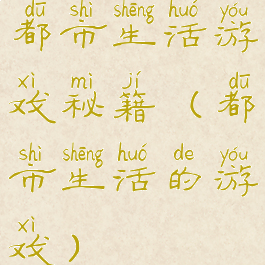 dū shì shēng huó yóu
都市生活游
xì mì jí dū
戏秘籍（都
shì shēng huó de yóu
市生活的游
xì
戏）